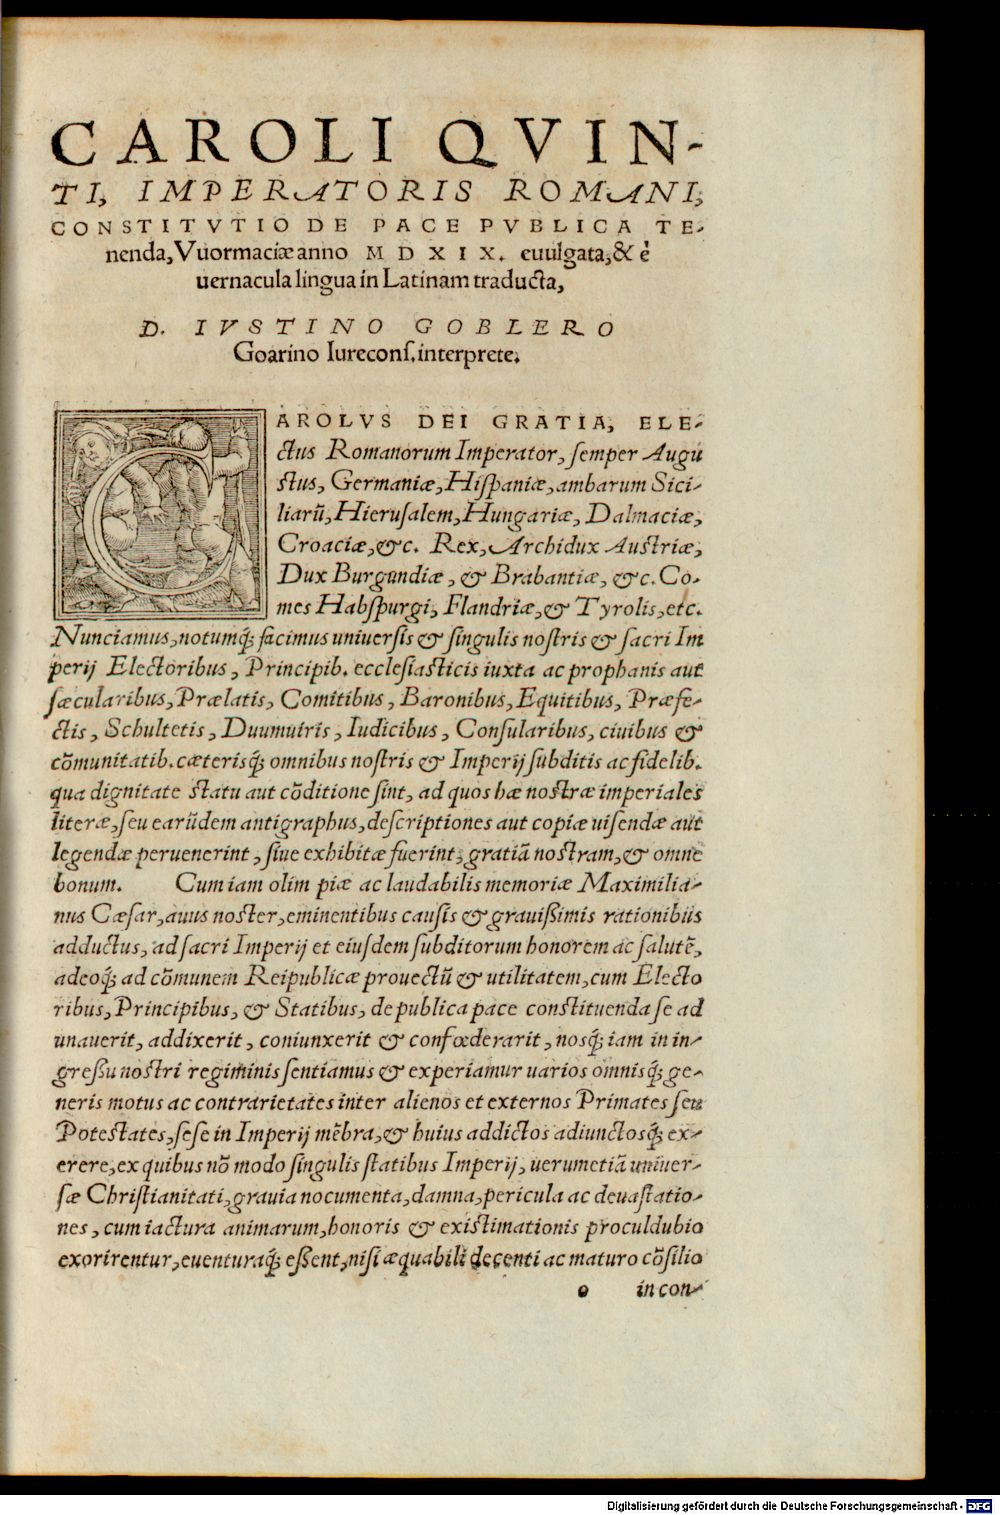 CAROLI QVIN-
TI, IMPERATORIS ROMANI,
CONSTITVTIO DE PACE PVBLICA TE-
nenda, Vuormaciæ anno MDXIX. euulgata, & è
uernacula lingua in Latinam traducta,
D. IVSTINO GOBLERO
Goarino Iurecons. interprete.
CAROLVS DEI GRATIA, ELE-
ctus Romanorum Imperator, semper Augu
stus, Germaniæ, Hispaniæ, ambarum Sici-
liarū, Hierusalem, Hungariæ, Dalmaciæ,
Croaciæ, &c. Rex, Archidux Austriæ,
Dux Burgundiæ, & Brabantiæ, &c. Co-
mes Habspurgi, Flandriæ, & Tyrolis, etc.
Nunciamus, notumq́; facimus uniuersis & singulis nostris & sacri Im
perij Electoribus, Principib. ecclesiasticis iuxta ac prophanis aut
sæcularibus, Prælatis, Comitibus, Baronibus, Equitibus, Præfe-
ctis, Schultetis, Duumuiris, Iudicibus, Consularibus, ciuibus &
cōmunitatib. cæterisq́; omnibus nostris & Imperij subditis ac fidelib.
qua dignitate statu aut cōditione sint, ad quos hæ nostræ imperiales
literæ, seu earūdem antigraphus, descriptiones aut copiæ uisendæ aut
legendæ peruenerint, siue exhibitæ fuerint, gratiā nostram, & omne
bonum. Cum iam olim piæ ac laudabilis memoriæ Maximilia-
nus Cæsar, auus noster, eminentibus causis & grauißimis rationibus
adductus, ad sacri Imperij et eiusdem subditorum honorem ac salutē,
adeoq́; ad cōmunem Reipublicæ prouectū & utilitatem, cum Electo
ribus, Principibus, & Statibus, de publica pace constituenda se ad
unauerit, addixerit, coniunxerit & confœderarit, nosq́; iam in in-
greßu nostri regiminis sentiamus & experiamur uarios omnisq́; ge-
neris motus ac contrarietates inter alienos et externos Primates seu
Potestates, sese in Imperij mēbra, & huius addictos adiunctosq́; ex-
erere, ex quibus nō modo singulis statibus Imperij, uerumetiā uniuer-
sæ Christianitati, grauia nocumenta, damna, pericula ac deuastatio-
nes, cum iactura animarum, honoris & existimationis proculdubio
exorirentur, euenturaq́; eßent, nisi æquabili decenti ac maturo cōsilio
o in con-
Digitalisierung gefördert durch die Deutsche Forschungsgemeinschaft - DFG